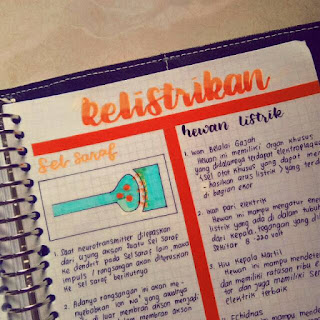 kelistrikan
Sel saraf
1. Saat neurotransmiter dilepaskan
dari ujung akson suatu sel saraf
ke dendrit pada sel saraf lain, maka
impuls / rangsangan akan diteruskan
ke sel saraf berikutnya
2. Adanya rangsangan ini akan me-
nyebabkan ion Na⁺ yang awalnya
di luar membran akson menjadi
membran akson
hewan listrik
1. Ikan Belalai Gajah
Hewan ini memiliki organ khusus
yang didalamnya terdapat electroplaque
sel otot khusus yang dapat meng-
hasilkan arus listrik) yang terdapat
di bagian ekor
2. Ikan pari elektrik
Hewan ini mampu mengatur energi
listrik yang ada di dalam tubuh
dari kepala. tegangan yang di
sekitar 8 - 220 volt
3. Hiu Kepala Martil
Hewan ini mampu mendete
dan memiliki ratusan ribu e
tor dan juga memiliki sen
elektrik terbaik
4. Echidnas